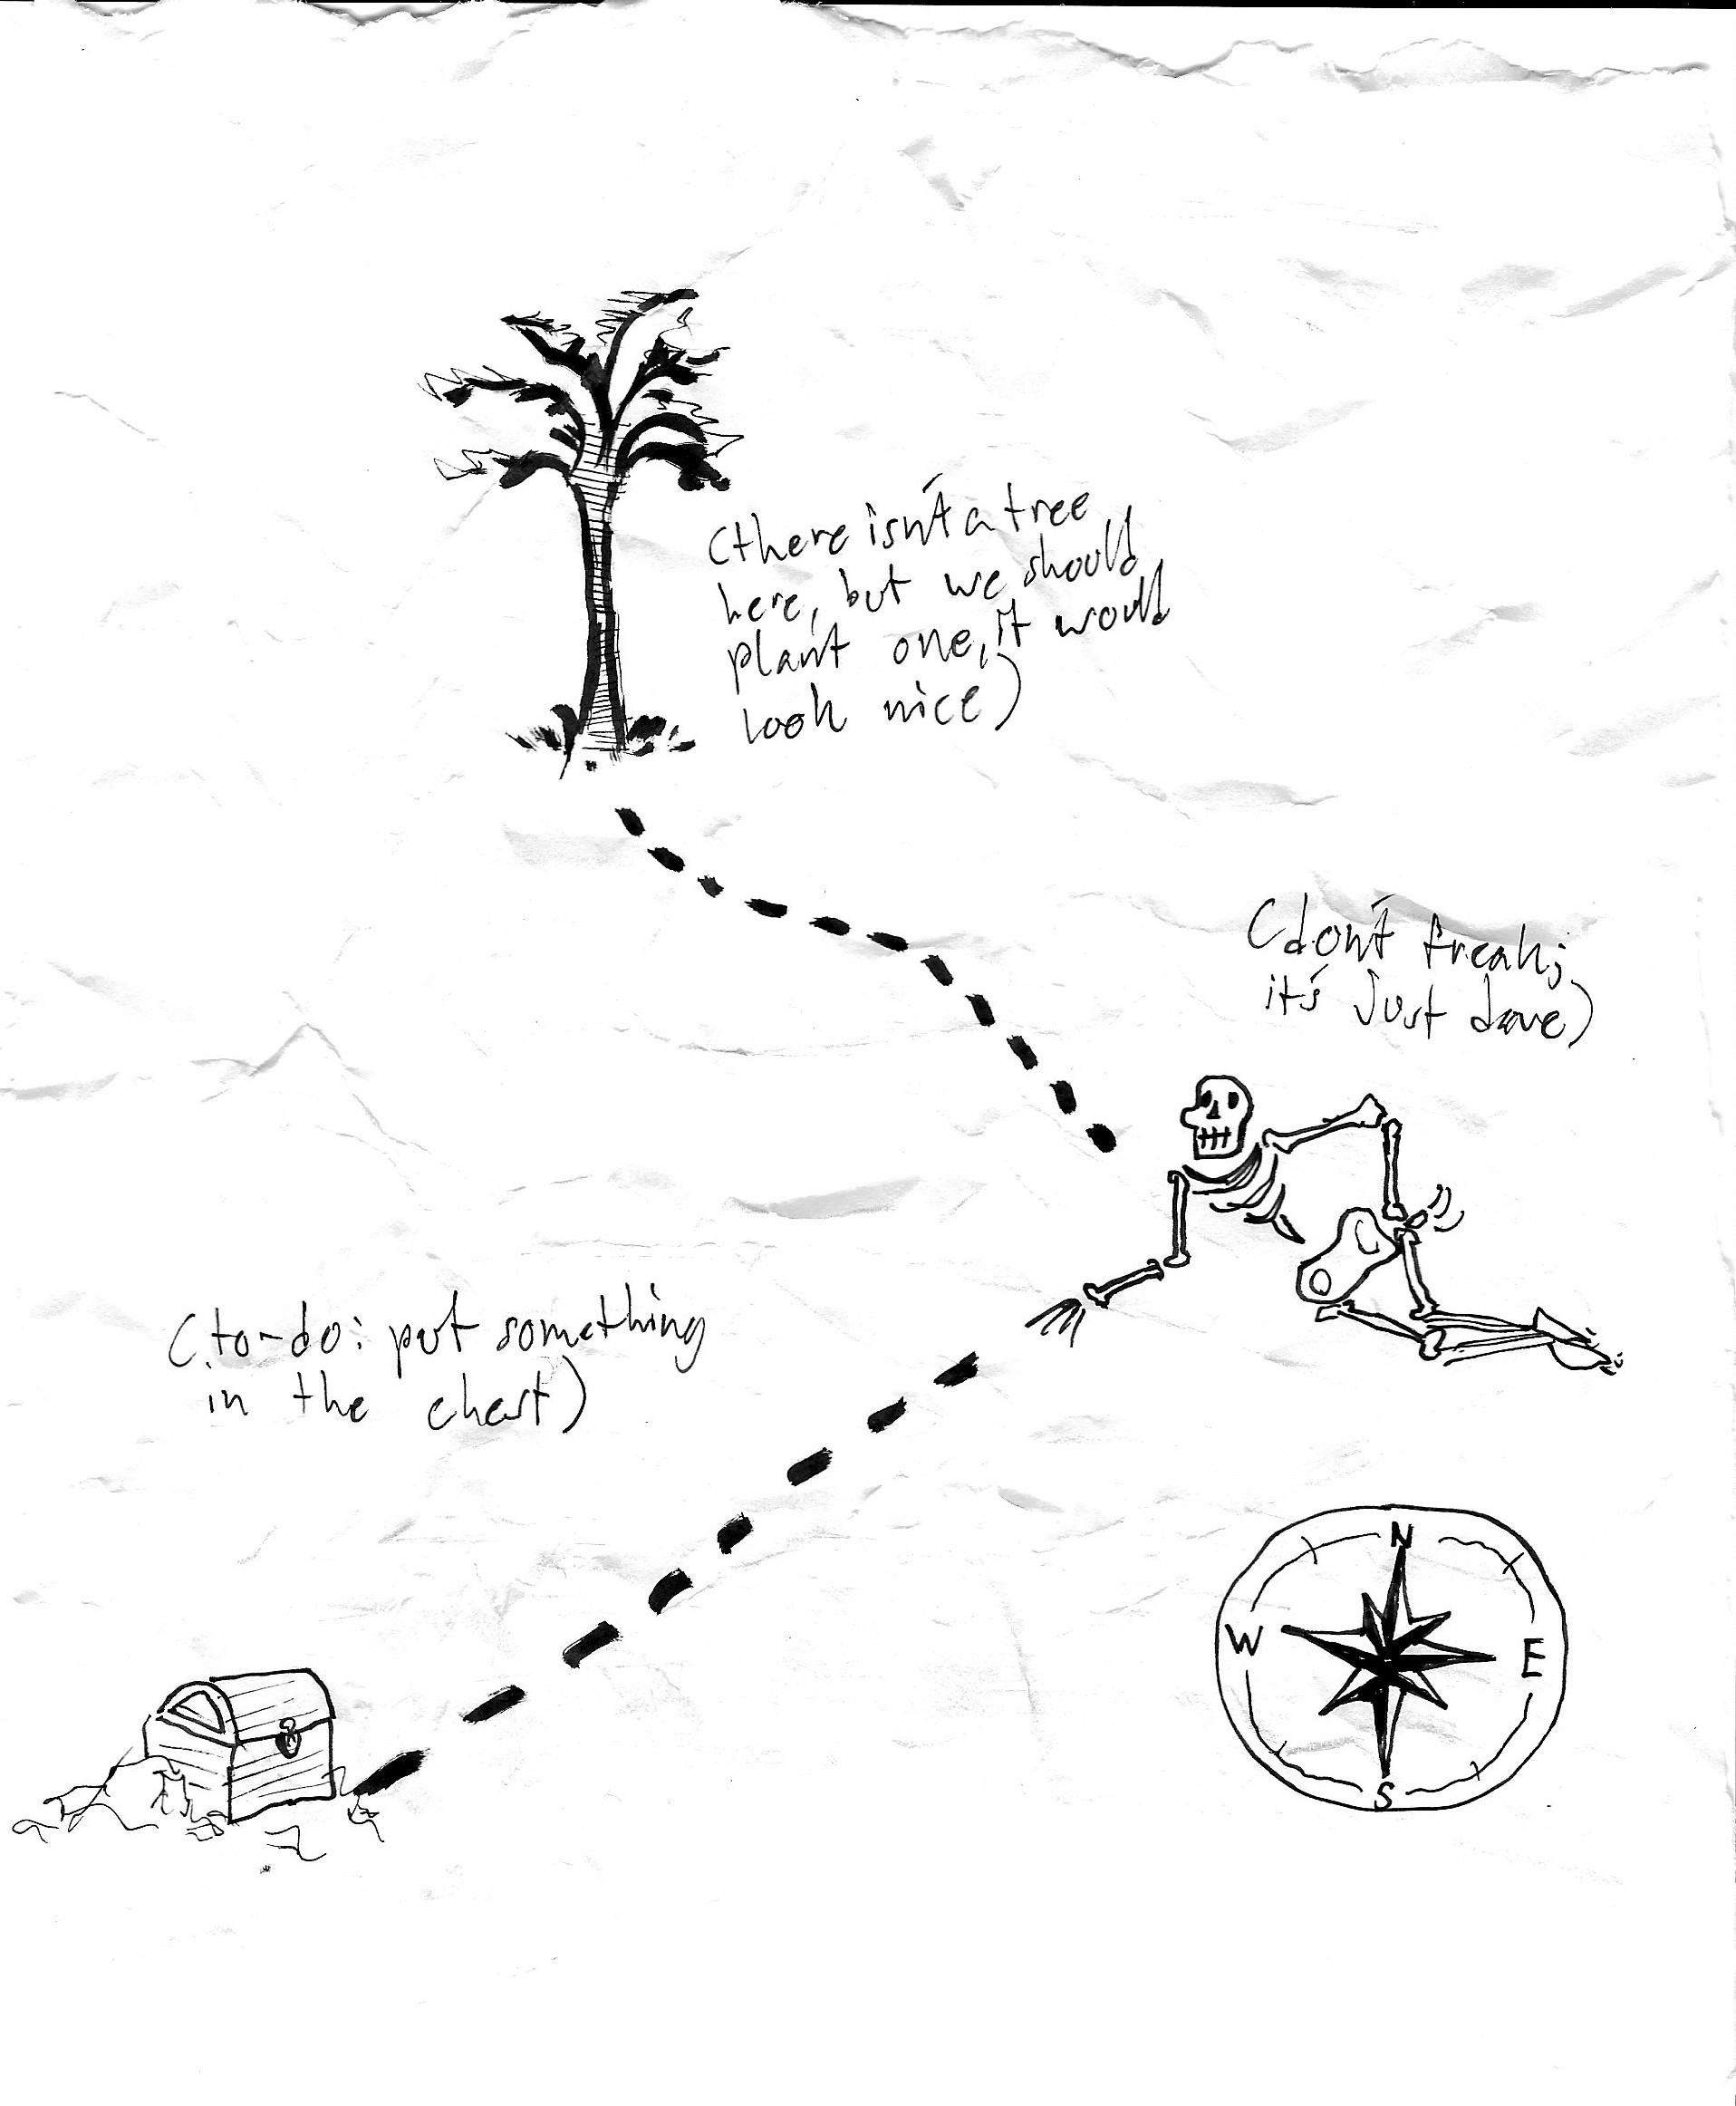 (there isn't a tree
here, but we should
plant one, it would
look nice)
(don't freak;
it's just dave)
(to-do: put something
in the chest)
N
W
E
S